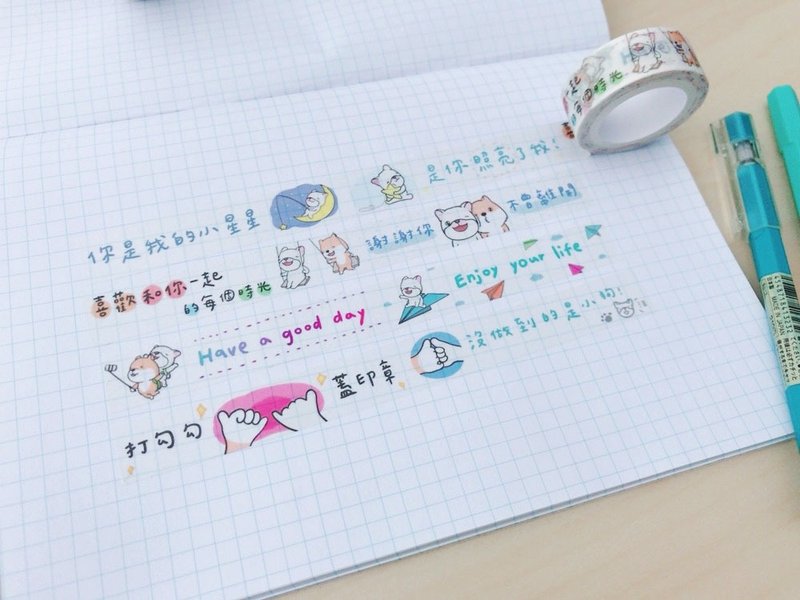 你是我的小星星 是你照亮了我!
喜歡和你一起的每個時光 謝謝你 不曾離開
Have a good day Enjoy your life
打勾勾 蓋印章 沒做到的是小狗!
每個時光